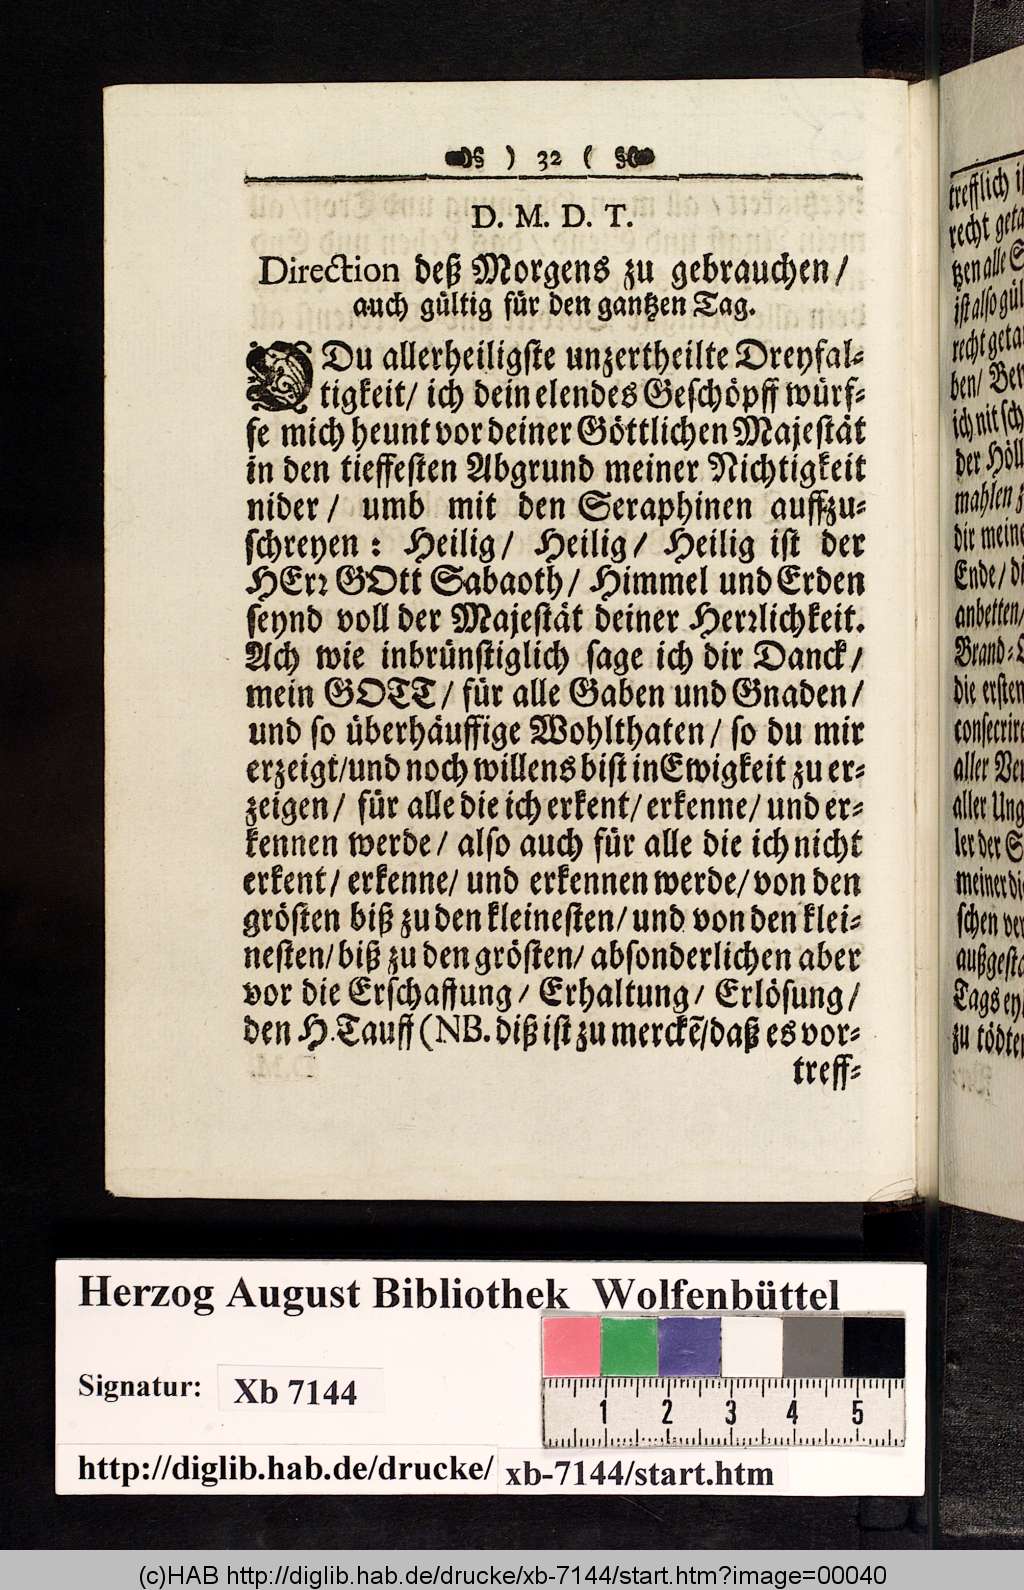 ) 32 (
D. M. D. T.
Direction deß Morgens zu gebrauchen/
auch gültig für den gantzen Tag.
O Du allerheiligste unzertheilte Dreyfal-
tigkeit/ ich dein elendes Geschöpff würf-
fe mich heunt vor deiner Göttlichen Majestät
in den tieffesten Abgrund meiner Nichtigkeit
nider/ umb mit den Seraphinen auffzu-
schreyen: Heilig/ Heilig/ Heilig ist der
HErr GOtt Sabaoth/ Himmel und Erden
seynd voll der Majestät deiner Herrlichkeit.
Ach wie inbrünstiglich sage ich dir Danck/
mein GOTT/ für alle Gaben und Gnaden/
und so überhäuffige Wohlthaten/ so du mir
erzeigt/ und noch willens bist in Ewigkeit zu er-
zeigen/ für alle die ich erkent/ erkenne/ und er-
kennen werde/ also auch für alle die ich nicht
erkent/ erkenne/ und erkennen werde/ von den
grösten biß zu den kleinesten/ und von den klei-
nesten/ biß zu den grösten/ absonderlichen aber
vor die Erschaffung/ Erhaltung/ Erlösung/
den H. Tauff (NB. diß ist zu merckẽ/ daß es vor-
treff-
trefflich
recht
tzen alle
ist also
recht
ben/
ich nit
der
mahlen
dir
Ende/
anbetten/
Brand-
die ersten
aller
aller
ler der
meiner
schen
Tags
zu
Herzog August Bibliothek Wolfenbüttel
Signatur: Xb 7144
1 2 3 4 5
http://diglib.hab.de/drucke/ xb-7144/start.htm
(c)HAB http://diglib.hab.de/drucke/xb-7144/start.htm?image=00040